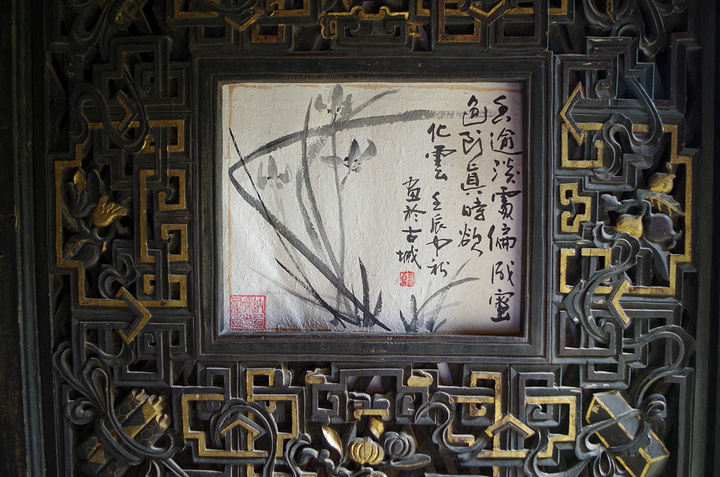 香逾淡處偏成蜜
色到眞時欲
化雲 壬辰秋
畫於古城